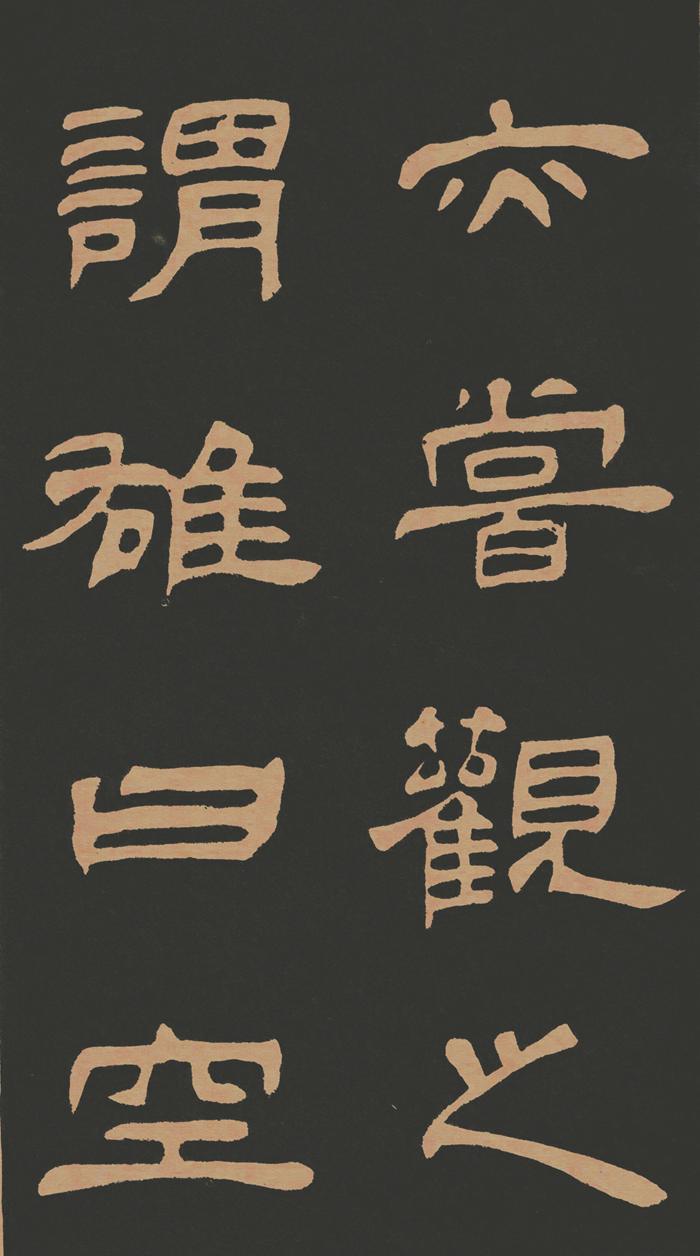 亦嘗觀之
謂雒曰空